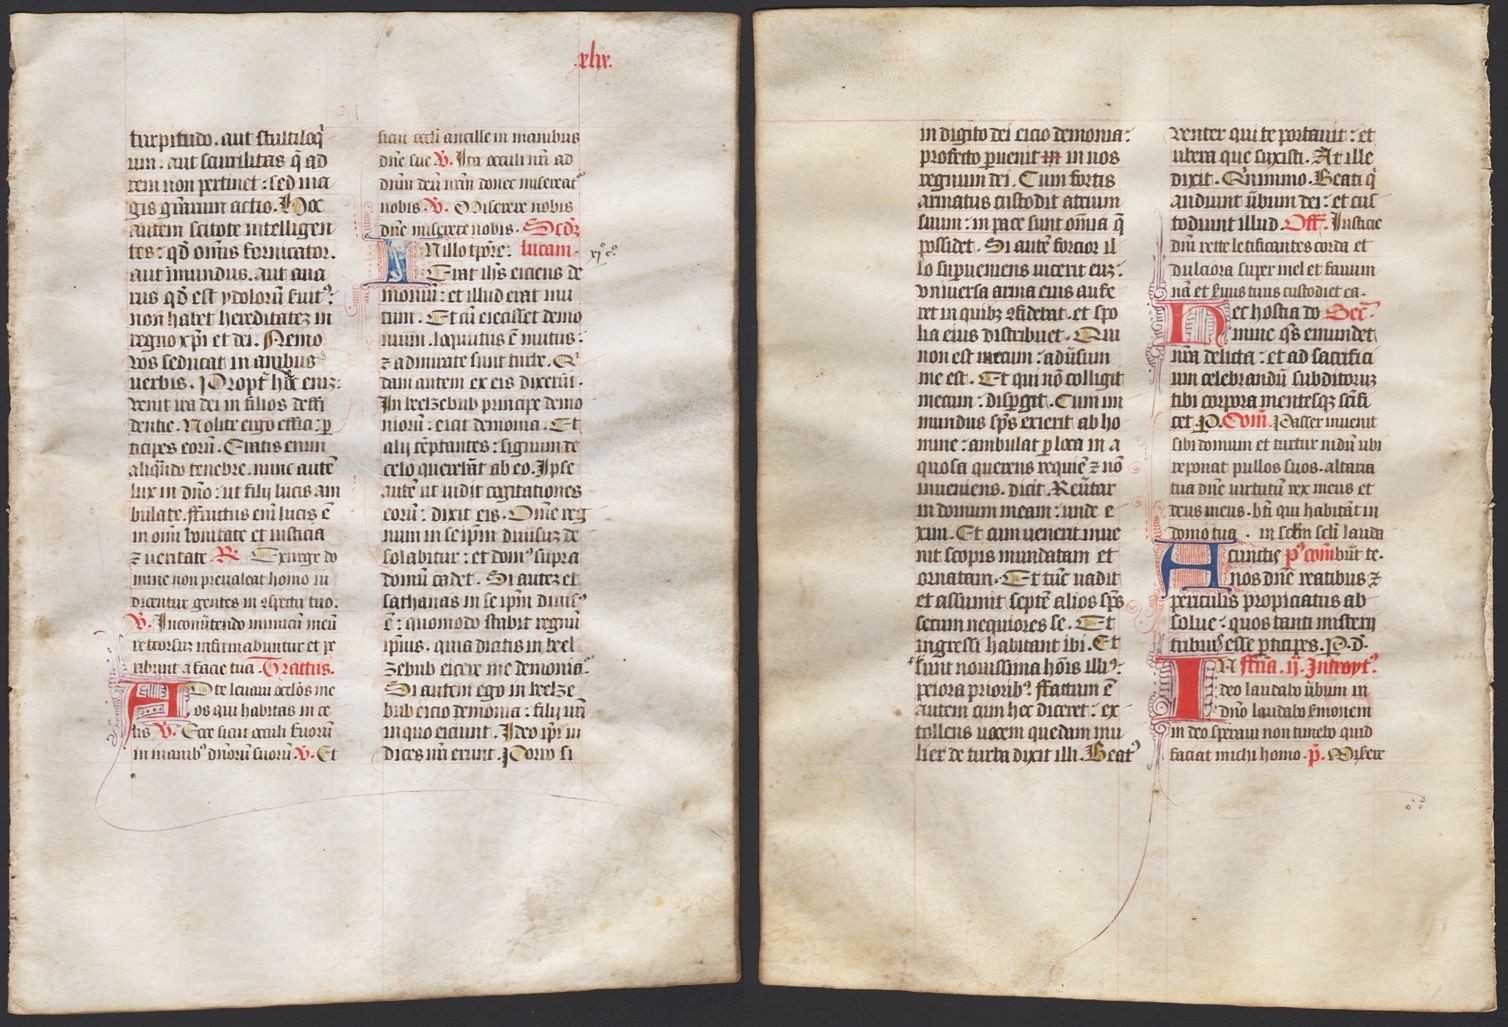 .xlix.
turpitudo. aut stultiloq̃
um. aut scurilitas q̃ ad
rem non pertinet: sed ma
gis gr̃arum actio. Hoc
autem scitote intelligen
tes: qd̃ om̃is fornicator.
aut inmundus. aut aua
rus qd̃ est ydoloꝝ seruit⁹:
non habet hereditateꝫ in
regno xp̃i et dei. Nemo
vos seducat in anibus
uerbis. Propt̃ hec eniꝫ:
venit ira dei in filios deffi
dentie. Nolite ergo effici: p̱
ticipes eorũ. Eratis enim
aliqñdo tenebre. nunc autẽ
lux in dño: ut filij lucis am
bulate. ffructus enĩ lucis ẽ
in om̃i bonitate et iusticia
⁊ ueritate R̃. Exurge do
mine non preualeat homo iu
dicentur gentes in ꝯspectu tuo:
V̄. In conũtendo inimicũ meũ
retrorsuꝫ infirmabuntur et pe
ribunt a facie tua Tractus.
AD te leuaui ocl̃os me
os qui habitas in ce
lis V̄. Ecce sicut oculi seruorũ
in manib⁹ dñorũ suorũ. V̄. Et
sicut ocl̃i ancille in manibus
dñe sue V̄. Ita oculi nr̃i ad
dñm deũ nr̃m donec misereat᷑
nobis. V̄. Miserere nobis
dñe miserere nobis. Scd̃ꝫ
IN illo tp̃re: lucam.
Erat ih̃s eiciens de
xj° c°
moniũ: et illud erat mu
tum. Et cũ eiecisset demo
nium. loquutus ẽ mutus:
⁊ admirate sunt turbe. Q̃
dam autem ex eis dixerũt.
In beelzebub principe demo
niorũ: eicit demonia. Et
alij tẽptantes: signum de
celo querebãt ab eo. Ipse
autẽ ut vidit cogitationes
eorũ: dixit eis. Om̃e reg
num in seip̃m diuisuꝫ de
solabitur: et dom⁹ supra
domũ cadet. Si auteꝫ et
sathanas in se ip̃m diuis⁹
ẽ: quomodo stabit regnũ
ipsius. quia dicitis in beel
zebub eicere me demonia.
Si autem ego in beelze
bub eicio demonia: filij ur̃i
in quo eiciunt. Ideo ip̃i iu
dices ur̃i erunt. Porro si
in digito dei eicio demonia:
profecto p̱uenit in nos
regnum dei. Cum fortis
armatus custodit atrium
suum: in pace sunt om̃ia q̃
possidet. Si autẽ forcior il
lo sup̱ueniens uicerit euꝫ:
vniuersa arma eius aufe
ret in quibꝫ ꝯfidebat. et spo
lia eius distribuet. Qui
non est mecum: adũsum
me est. Et qui nõ colligit
mecum: disp̱git. Cum im
mundus sp̃s exierit ab ho
mine: ambulat p̱ loca in a
quosa querens requiẽ ⁊ nõ
inueniens. dicit. Reũtar
in domum meam: unde e
xiui. Et cum uenerit inue
nit scopis mundatam et
ornatam. Et tũc uadit
et assumit septẽ alios sp̃s
secum nequiores se. Et
ingressi habitant ibi. Et
fiunt nouissima hõis illi⁹:
peiora priorib⁹. ffactum ẽ
autem cum hec diceret: ex
tollens uocem quedam mu
lier de turba dixit illi. Beat⁹
venter qui te portauit: et
ubera que suxisti. At ille
dixit. Quinimmo. Beati q̃
audiunt ũbum dei: et cus
todiunt illud. Off̃. Iusticie
dñi recte letificantes corda et
dulciora super mel et fauum
nã et seruus tuus custodiet ea.
Hec hostia do Sec̃.
mine qs̃ emundet
nr̃a delicta: et ad sacrifici
um celebrandũ subditoruꝫ
tibi corpora mentesqꝫ scĩfi
cet P̱. Com̃. Passer inuenit
sibi domum et turtur nidũ ubi
reponat pullos suos. altaria
tua dñe uirtutũ rex meus et
deus meus. bt̃i qui habitãt in
domo tua. in sclm̃ scl̃i lauda
A cunctis p⁹ com̃ bũt te.
nos dñe reatibus ⁊
periculis propiciatus ab
solue: quos tanti misterij
tribuis esse p̱ticipes. P̱. d̃.
IN fr̃ia. ij. Introyt⁹.
deo laudabo ũbum in
dño laudabo sermonem
in deo speraui non timebo quid
faciat michi homo. p̃. Mi̇serere